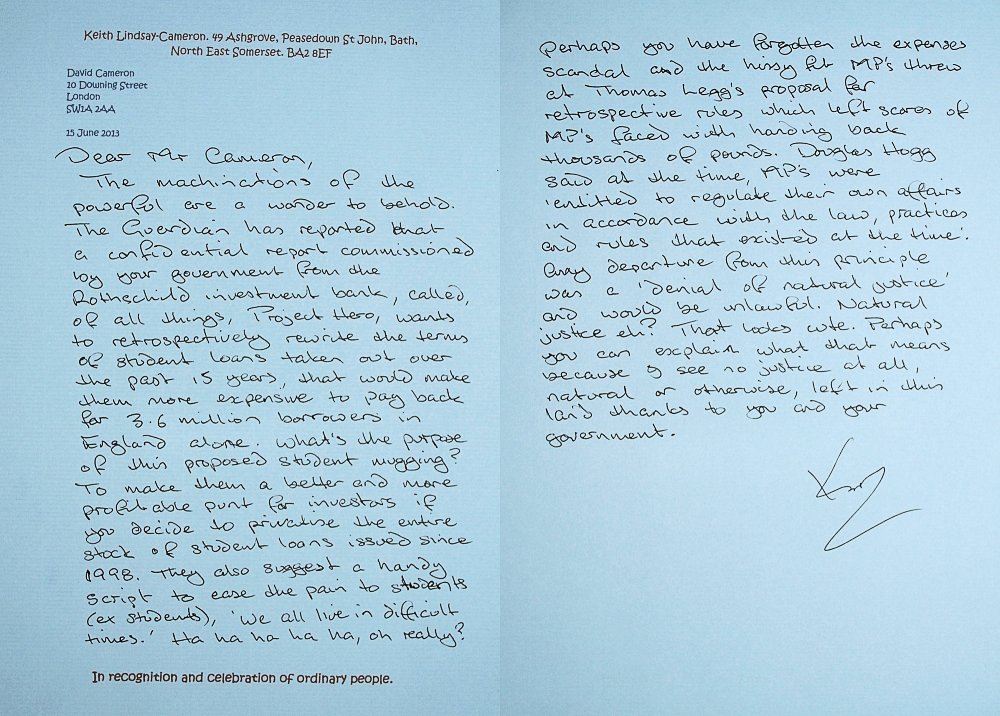 Keith Lindsay-Cameron. 49 Ashgrove, Peasedown St John, Bath,
North East Somerset. BA2 8EF
David Cameron
10 Downing Street
London
SW1A 2AA
15 June 2013
Dear Mr Cameron,
The machinations of the
powerful are a wonder to behold.
The Guardian has reported that
a confidential report commissioned
by your government from the
Rothschild investment bank, called,
of all things, Project Hero, wants
to retrospectively rewrite the terms
of student loans taken out over
the past 15 years, that would make
them more expensive to pay back
for 3.6 million borrowers in
England alone. What's the purpose
of this proposed student mugging?
To make them a better and more
profitable punt for investors if
you decide to privatise the entire
stock of student loans issued since
1998. They also suggest a handy
script to ease the pain to students
(ex students), 'we all live in difficult
times.' Ha ha ha ha ha, oh really?
In recognition and celebration of ordinary people.
Perhaps you have forgotten the expenses
scandal and the hissy fit MP's threw
at Thomas Legg's proposal for
retrospective rules which left scores of
MP's faced with handing back
thousands of pounds. Douglas Hogg
said at the time, MP's were
'entitled to regulate their own affairs
in accordance with the law, practices
and rules that existed at the time'.
Any departure from this principle
was a 'denial of natural justice'
and would be unlawful. Natural
justice eh? That looks cute. Perhaps
you can explain what that means
because I see no justice at all,
natural or otherwise, left in this
land thanks to you and your
government.